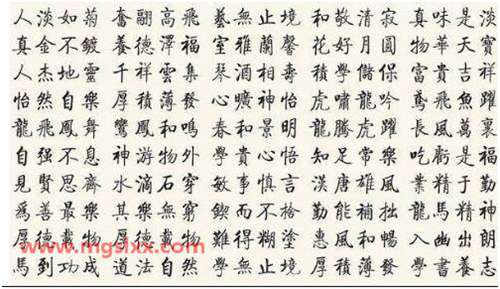 人淡如菊 奮翮高飛 藝無止境 和敬清寂 真味是淡
真金不鍍 養德澤福 室雅蘭馨 花好月圓 物華天寶
人杰地靈 千祥雲集 琴酒相壽 學儲 富貴吉祥
怡然自樂 厚積薄發 心曠神怡 虎嘯龍吟 鳶飛魚躍
龍飛鳳舞 鸞鳳和鳴 春和景明 龍騰虎躍 長風萬裏
自强不息 神游物外 學貴心悟 知足常樂 吃虧是福
見賢思齊 水滴石穿 敏事慎言 漢唐雄風 業精于勤
爲善最樂 其樂無窮 鍥而不捨 勤能補拙 龍馬精神
厚德載物 厚德載物 難得糊塗 惠風和暢 入幽出朗
www.mgslxx.com
馬到功成 道法自然 學無止境 厚積薄發 學書養志